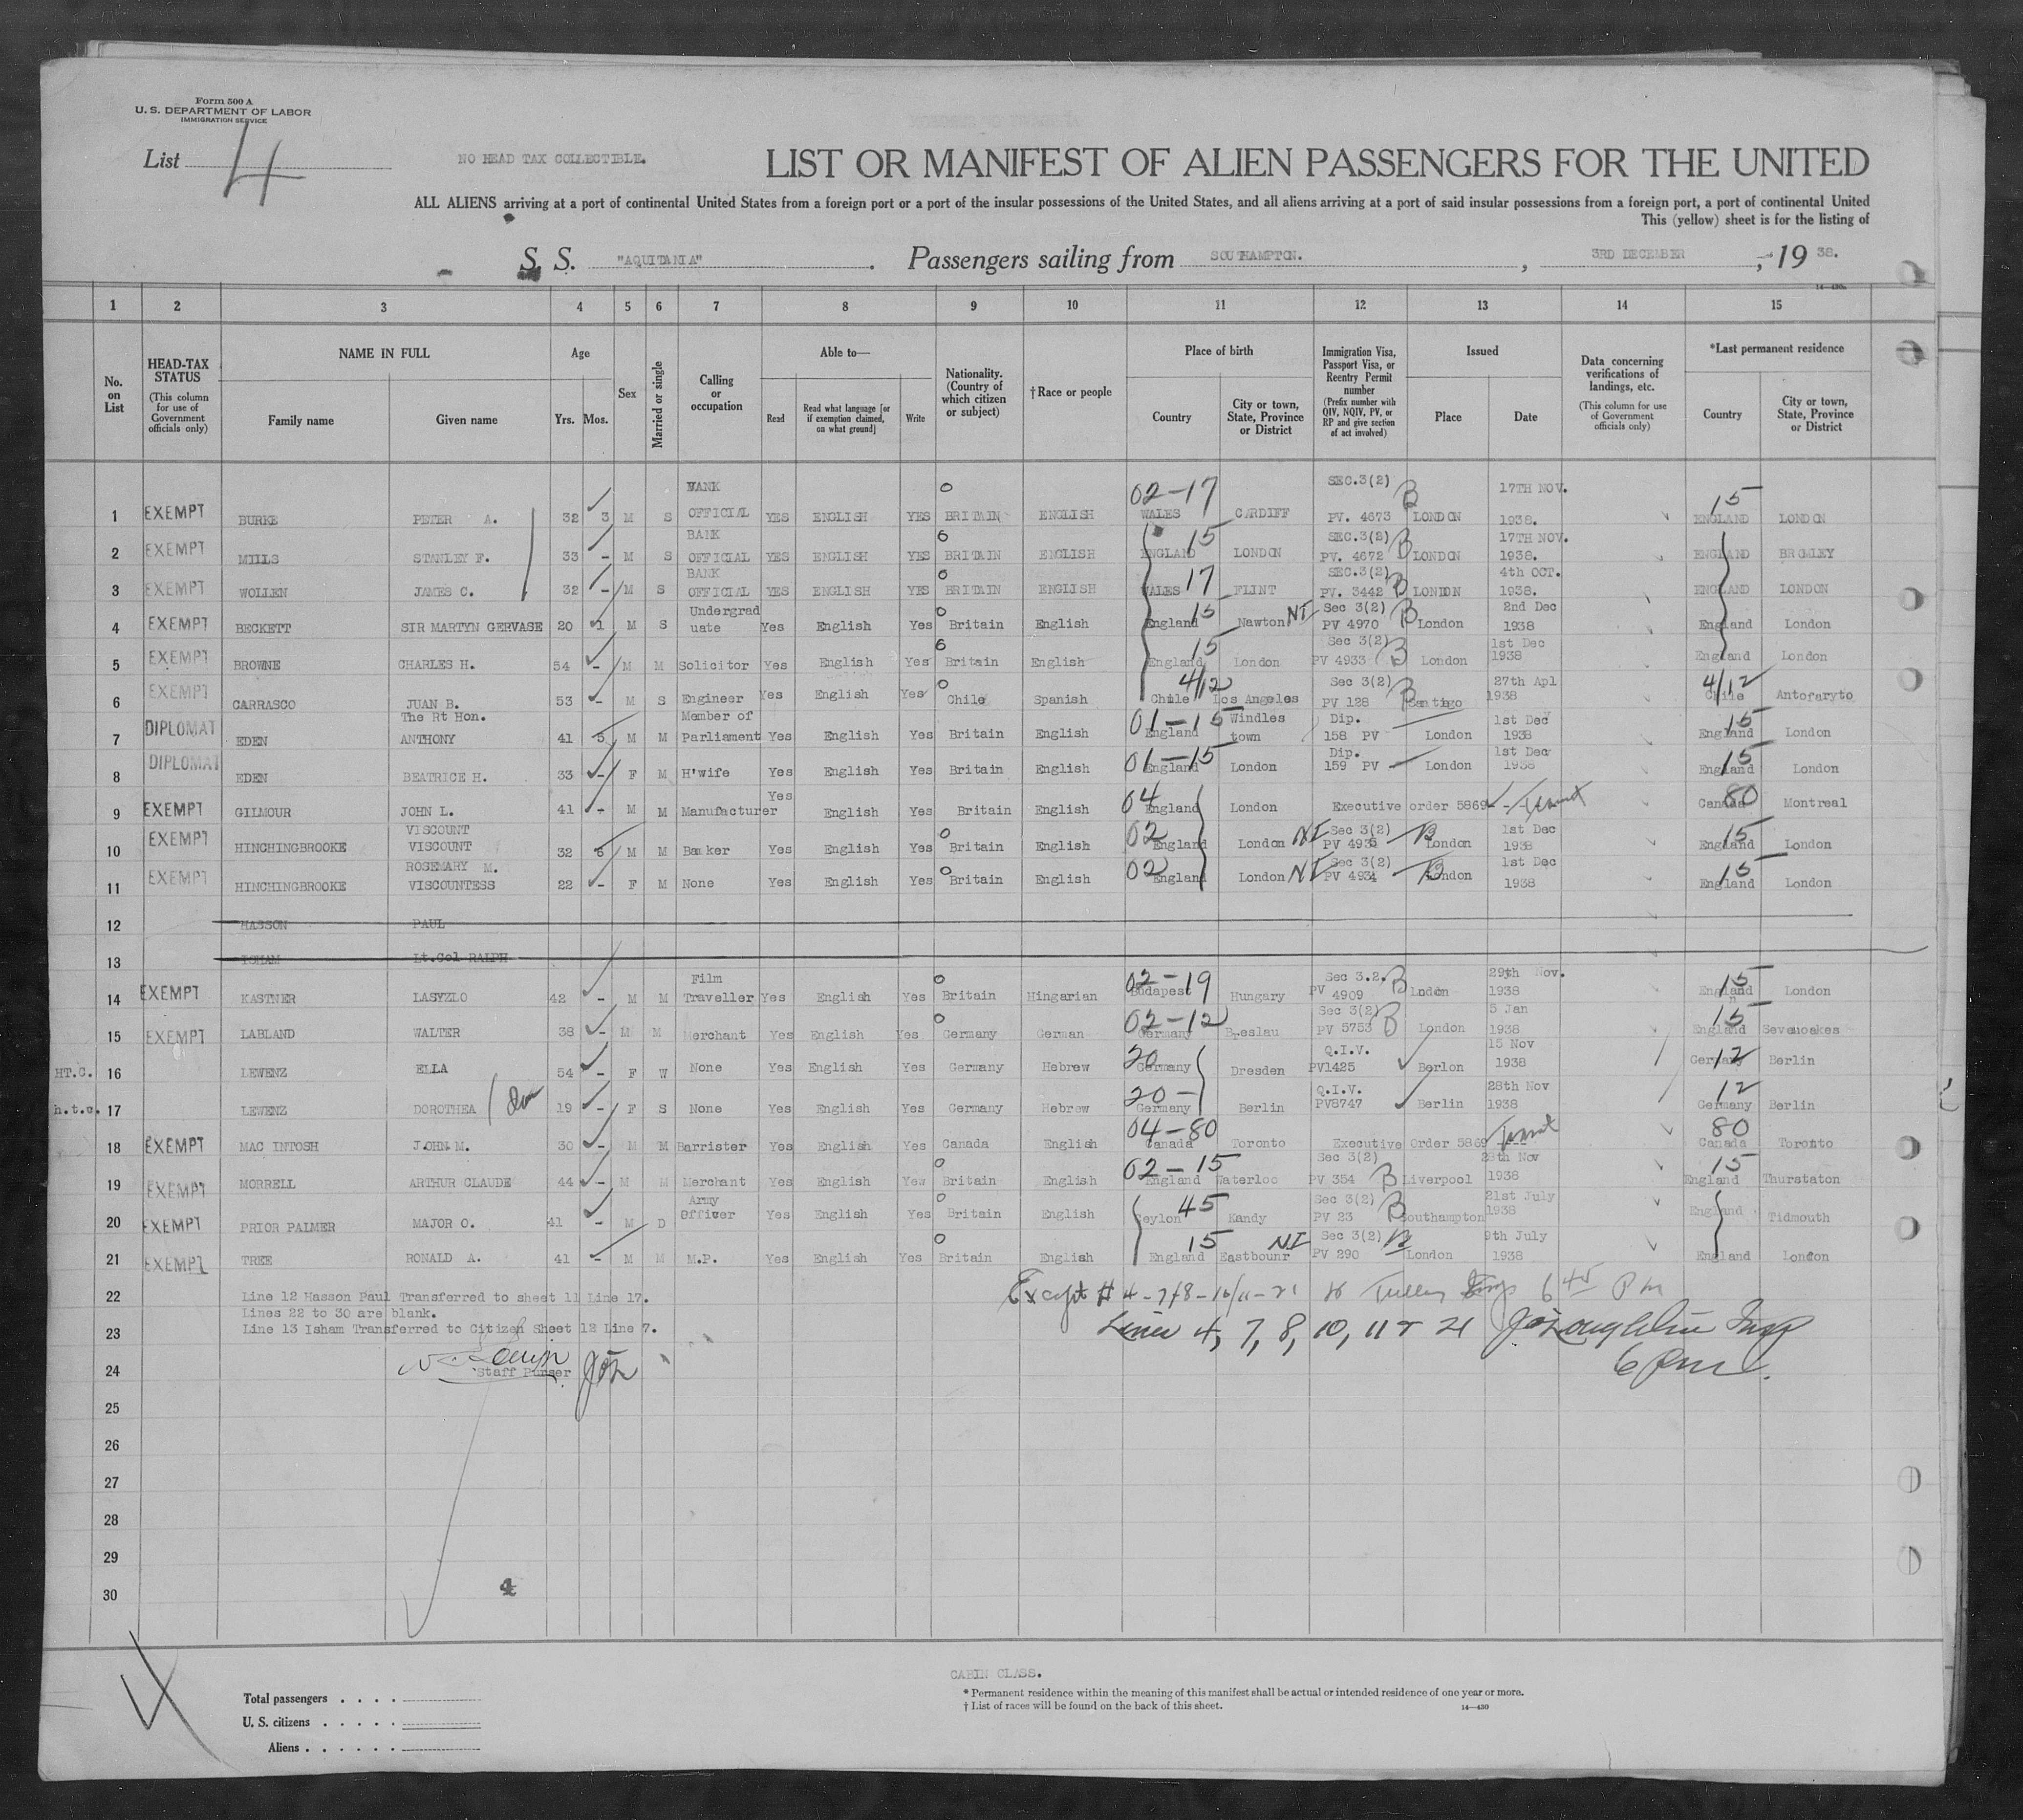 Form 500 A
U. S. DEPARTMENT OF LABOR
IMMIGRATION SERVICE
List 4
NO HEAD TAX COLLECTIBLE.
LIST OR MANIFEST OF ALIEN PASSENGERS FOR THE UNITED
ALL ALIENS arriving at a port of continental United States from a foreign port or a port of the insular possessions of the United States, and all aliens arriving at a port of said insular possessions from a foreign port, a port of continental United
This (yellow) sheet is for the listing of
S. S. "AQUITANIA" . Passengers sailing from SOUTHAMPTON. , 3RD DECEMBER , 19 38.
14—430
1 2 3 4 5 6 7 8 9 10 11 12 13 14 15
No. on List
HEAD-TAX STATUS (This column for use of Government officials only)
NAME IN FULL Family name Given name
Age Yrs. Mos.
Sex
Married or single
Calling or occupation
Able to— Read Read what language [or if exemption claimed, on what ground] Write
Nationality. (Country of which citizen or subject)
†Race or people
Place of birth Country City or town, State, Province or District
Immigration Visa, Passport Visa, or Reentry Permit number (Prefix number with QIV, NQIV, PV, or RP and give section of act involved)
Issued Place Date
Data concerning verifications of landings, etc. (This column for use of Government officials only)
*Last permanent residence Country City or town, State, Province or District
1 EXEMPT BURKE PETER A. 32 3 M S BANK OFFICIAL YES ENGLISH YES BRITAIN ENGLISH 02-17 WALES CARDIFF SEC.3(2) PV. 4673 B LONDON 17TH NOV. 1938. 15 ENGLAND LONDON
2 EXEMPT MILLS STANLEY F. 33 - M S BANK OFFICIAL YES ENGLISH YES BRITAIN ENGLISH 15 ENGLAND LONDON SEC.3(2) PV. 4672 B LONDON 17TH NOV. 1938. ENGLAND BROMLEY
3 EXEMPT WOLLEN JAMES C. 32 - M S BANK OFFICIAL YES ENGLISH YES BRITAIN ENGLISH 17 WALES FLINT SEC.3(2) PV. 3442 B LONDON 4th OCT. 1938. ENGLAND LONDON
4 EXEMPT BECKETT SIR MARTYN GERVASE 20 1 M S Undergrad uate Yes English Yes Britain English 15 England Nawton NI Sec 3(2) PV 4970 B London 2nd Dec 1938 England London
5 EXEMPT BROWNE CHARLES H. 54 - M M Solicitor Yes English Yes Britain English 15 England London Sec 3(2) PV 4933 B London 1st Dec 1938 England London
6 EXEMPT CARRASCO JUAN B. 53 - M S Engineer Yes English Yes Chile Spanish 4/12 Chile Los Angeles Sec 3(2) PV 128 B Santiago 27th Apl 1938 4/12 Chile Antofaryto
7 DIPLOMAT EDEN The Rt Hon. ANTHONY 41 5 M M Member of Parliament Yes English Yes Britain English 01-15 England Windles town Dip. 158 PV London 1st Dec 1938 15 England London
8 DIPLOMAT EDEN BEATRICE H. 33 - F M H'wife Yes English Yes Britain English 01-15 England London Dip. 159 PV London 1st Dec 1938 15 England London
9 EXEMPT GILMOUR JOHN L. 41 - M M Manufacturer Yes English Yes Britain English 04 England London Executive order 5869 80 Canada Montreal
10 EXEMPT HINCHINGBROOKE VISCOUNT VISCOUNT 32 6 M M Banker Yes English Yes Britain English 02 England London NI Sec 3(2) PV 4935 B London 1st Dec 1938 15 England London
11 EXEMPT HINCHINGBROOKE ROSEMARY M. VISCOUNTESS 22 - F M None Yes English Yes Britain English 02 England London NI Sec 3(2) PV 4934 B London 1st Dec 1938 15 England London
12 HASSON PAUL
13 ISHAM Lt.Col RALPH
14 EXEMPT KASTNER LASYZLO 42 - M M Film Traveller Yes English Yes Britain Hingarian 02-19 Budapest Hungary Sec 3.2. PV 4909 B 29th Nov. 1938 15 England London
15 EXEMPT LABLAND WALTER 38 - M M Merchant Yes English Yes Germany German 02-12 Germany Breslau Sec 3(2) PV 5753 B London 5 Jan 1938 15 England Sevenoakes
HT.C. 16 LEWENZ ELLA 54 - F W None Yes English Yes Germany Hebrew 20 Germany Dresden Q.I.V. PV1425 Berlon 15 Nov 1938 12 Germany Berlin
h.t.c. 17 LEWENZ DOROTHEA 19 - F S None Yes English Yes Germany Hebrew 20- Germany Berlin Q.I.V. PV8747 Berlin 28th Nov 1938 12 Germany Berlin
18 EXEMPT MAC INTOSH JOHN M. 30 - M M Barrister Yes English Yes Canada English 04-80 Canada Toronto Executive Order 5869 80 Canada Toronto
19 EXEMPT MORRELL ARTHUR CLAUDE 44 - M M Merchant Yes English Yew Britain English 02-15 England Waterloo Sec 3(2) PV 354 B Liverpool 28th Nov 1938 15 England Thurstaton
20 EXEMPT PRIOR PALMER MAJOR O. 41 - M D Army Officer Yes English Yes Britain English 45 Ceylon Kandy Sec 3(2) PV 23 B Southampton 21st July 1938 England Tidmouth
21 EXEMPT TREE RONALD A. 41 - M M M.P. Yes English Yes Britain English 15 England Eastbounr NI Sec 3(2) PV 290 B London 9th July 1938 England London
22 Line 12 Hasson Paul Transferred to sheet 11 Line 17.
Except # 4-7+8-10/11-21 6 45 PM
Lines 22 to 30 are blank.
23 Line 13 Isham Transferred to Citizen Sheet 12 Line 7.
Lines 4, 7, 8, 10, 11 & 21
6 Pm.
24 Staff Purser
25
26
27
28
29
30
4
4
CABIN CLASS.
Total passengers . . . .
U. S. citizens . . . . .
Aliens . . . . . .
* Permanent residence within the meaning of this manifest shall be actual or intended residence of one year or more.
† List of races will be found on the back of this sheet.
14—430